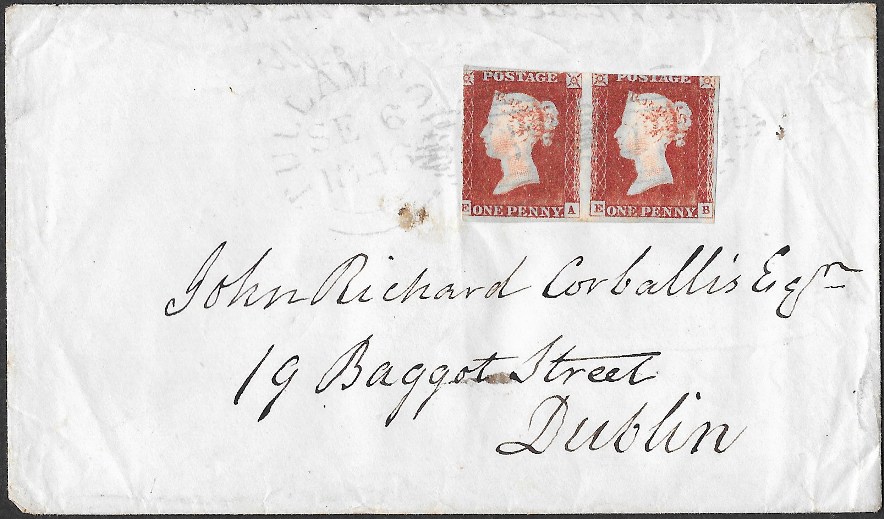 TULLAMO
SE 6
POSTAGE POSTAGE
E ONE PENNY A E ONE PENNY B
John Richard Corballis Esqr
19 Baggot Street
Dublin